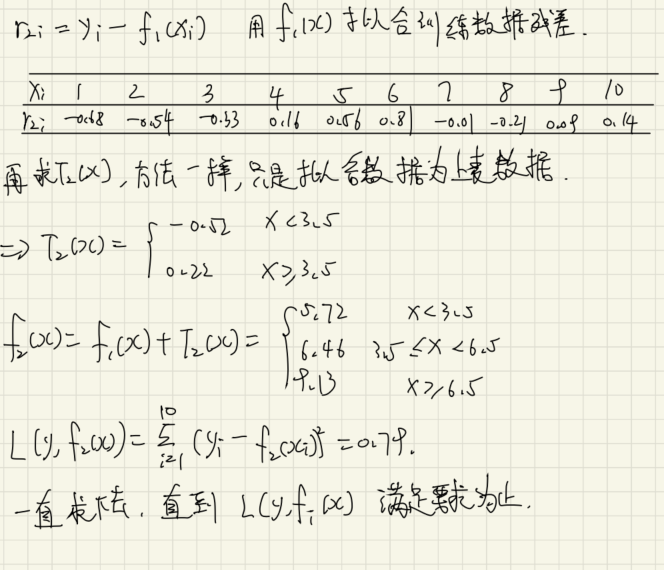 r₂ᵢ = yᵢ - f₁(xᵢ) 用 f₁(x) 拟合训练数据残差.
xᵢ 1 2 3 4 5 6 7 8 9 10
r₂ᵢ -0.68 -0.54 -0.33 0.16 0.56 0.81 -0.01 -0.21 0.09 0.14
再求T₂(x), 方法一样, 只是拟合数据为上表数据.
⇒ T₂(x) = { -0.52 x<3.5
0.22 x≥3.5
f₂(x) = f₁(x) + T₂(x) = { 5.72 x<3.5
6.46 3.5≤x<6.5
9.13 x≥6.5
L(y, f₂(x)) = Σᵢ₌₁¹⁰ (yᵢ - f₂(xᵢ))² = 0.79.
一直求下去, 直到 L(y, fᵢ(x) 满足要求为止.